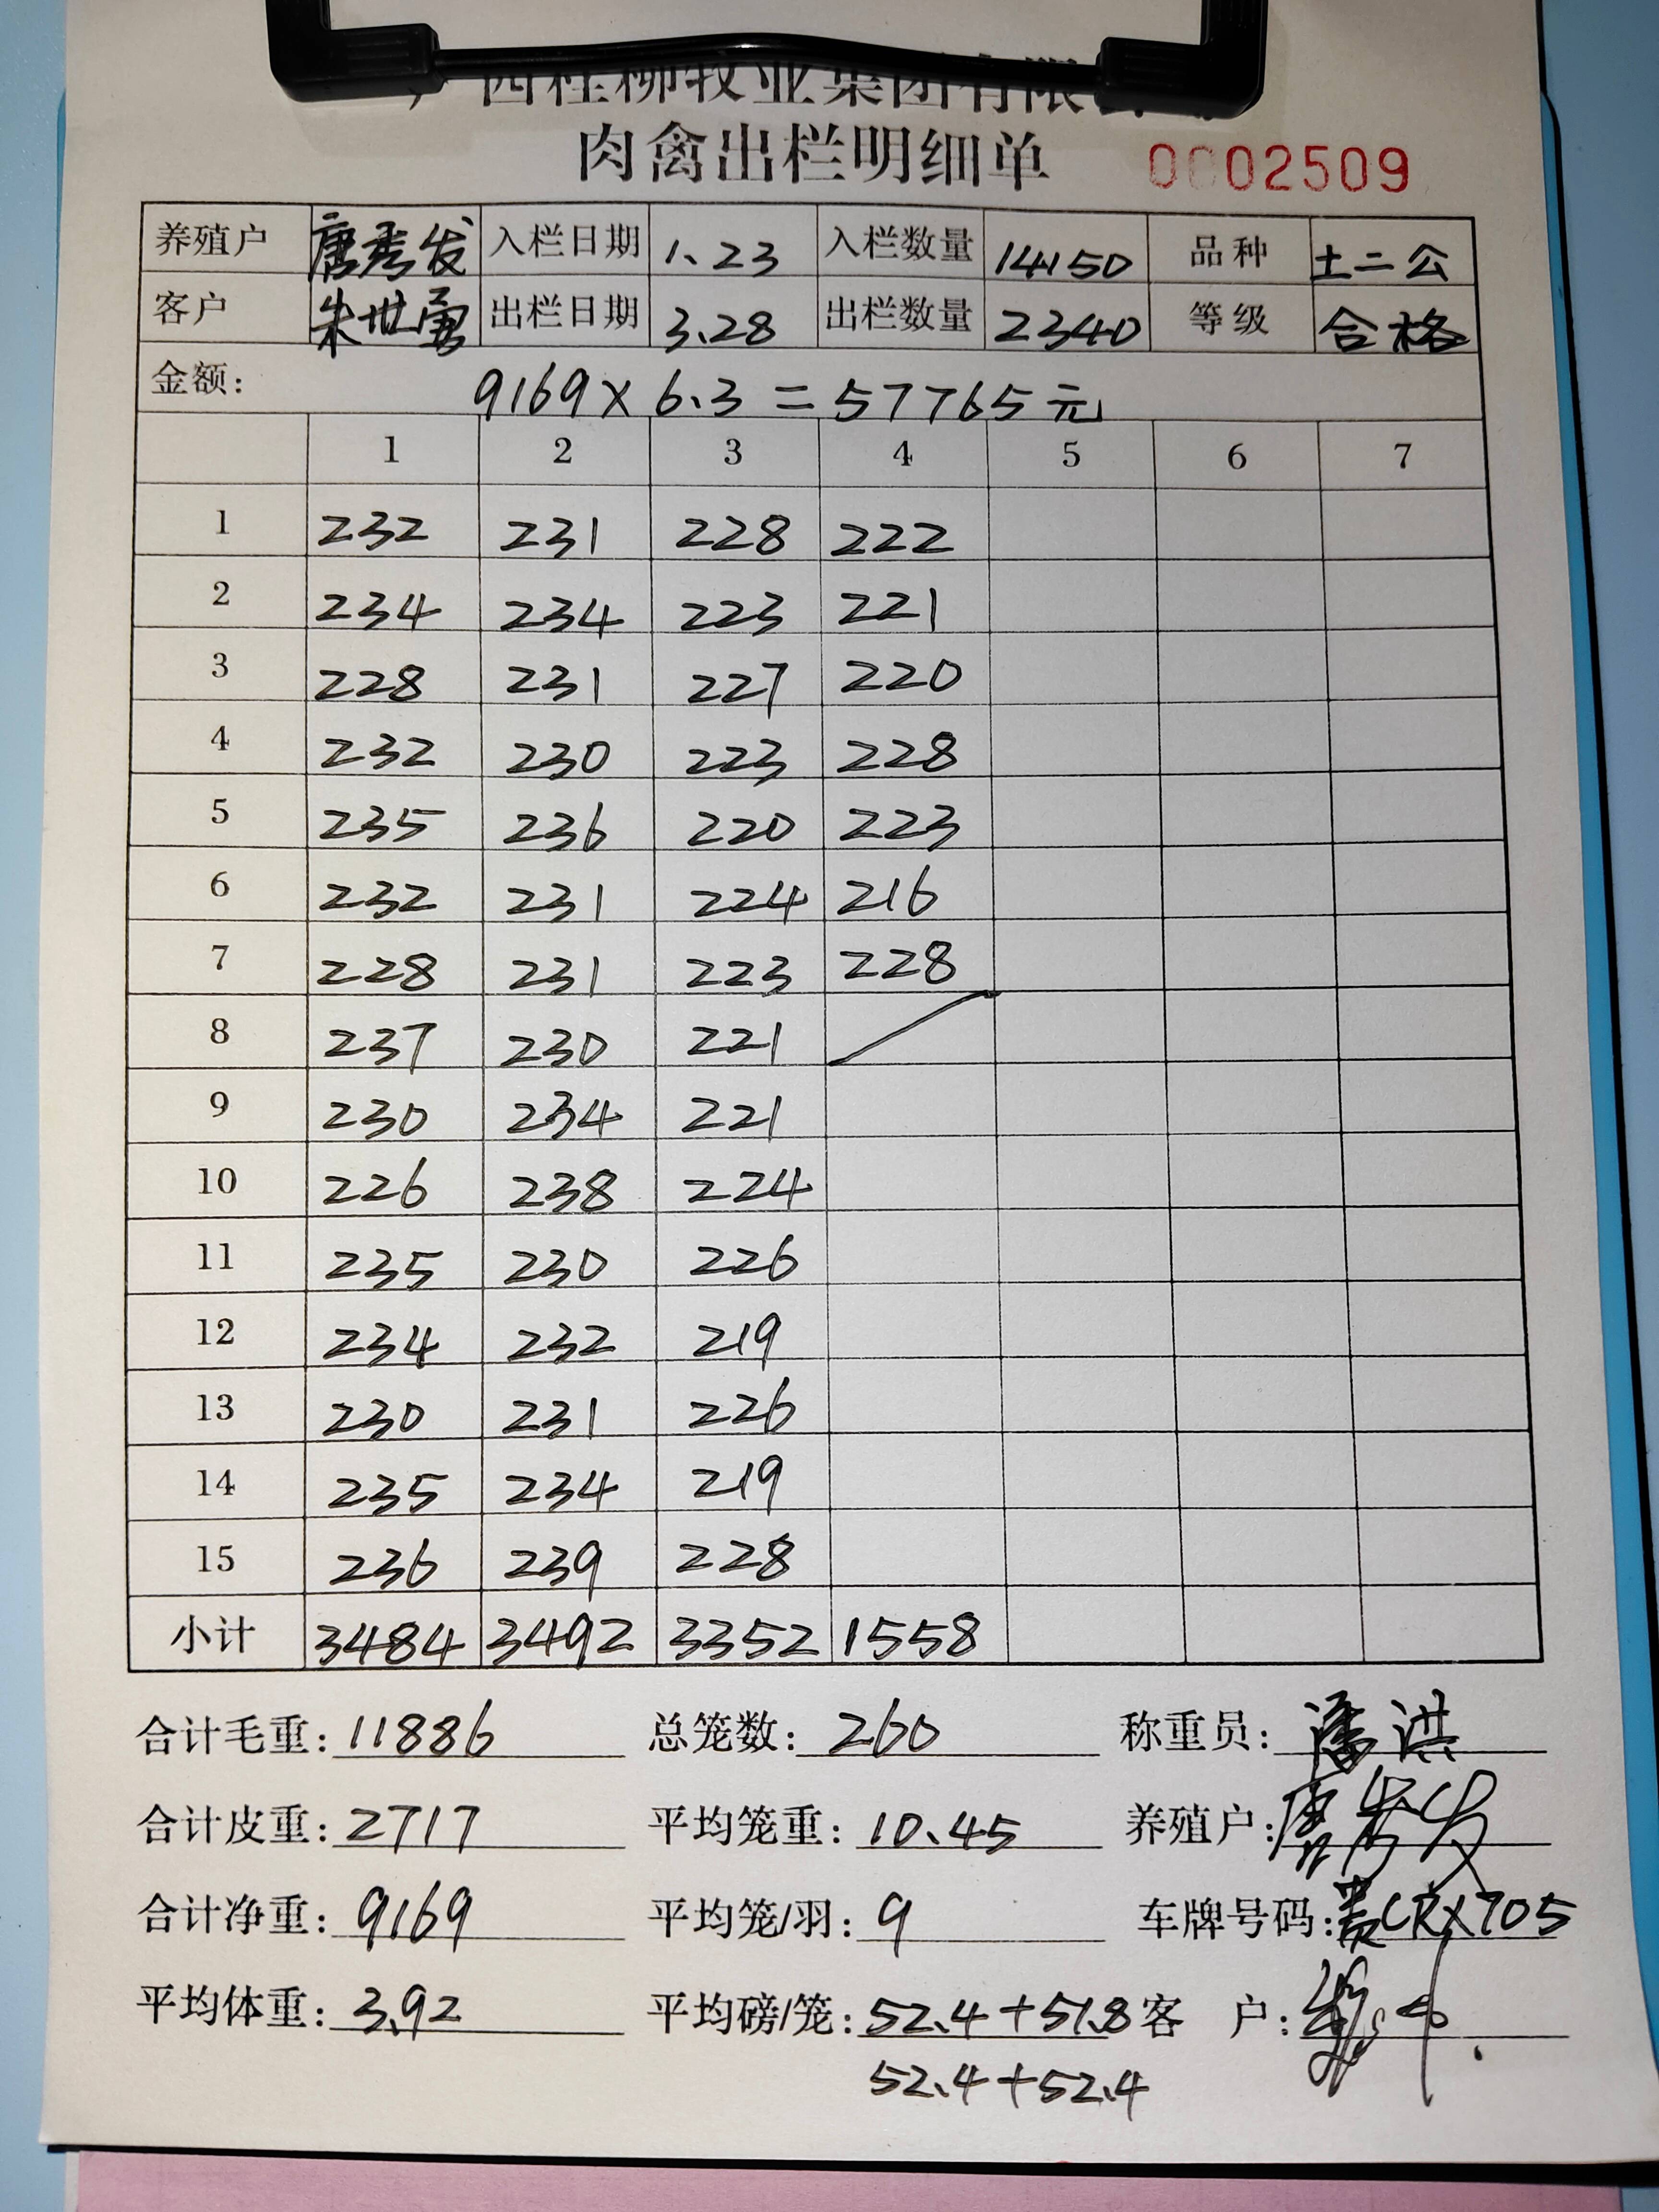 西桂柳牧业集团有限
肉禽出栏明细单 0002509
养殖户 唐秀发 入栏日期 1.23 入栏数量 14150 品种 土二公
客户 朱世勇 出栏日期 3.28 出栏数量 2340 等级 合格
金额: 9169×6.3=57765元
1 2 3 4 5 6 7
1 232 231 228 222
2 234 234 223 221
3 228 231 227 220
4 232 230 223 228
5 235 236 220 223
6 232 231 224 216
7 228 231 223 228
8 237 230 221
9 230 234 221
10 226 238 224
11 235 230 226
12 234 232 219
13 230 231 226
14 235 234 219
15 236 239 228
小计 3484 3492 3352 1558
合计毛重: 11886 总笼数: 260 称重员: 潘洪
合计皮重: 2717 平均笼重: 10.45 养殖户: 唐秀发
合计净重: 9169 平均笼/羽: 9 车牌号码: 贵CRX705
平均体重: 3.92 平均磅/笼: 52.4+51.8 客户:
52.4+52.4